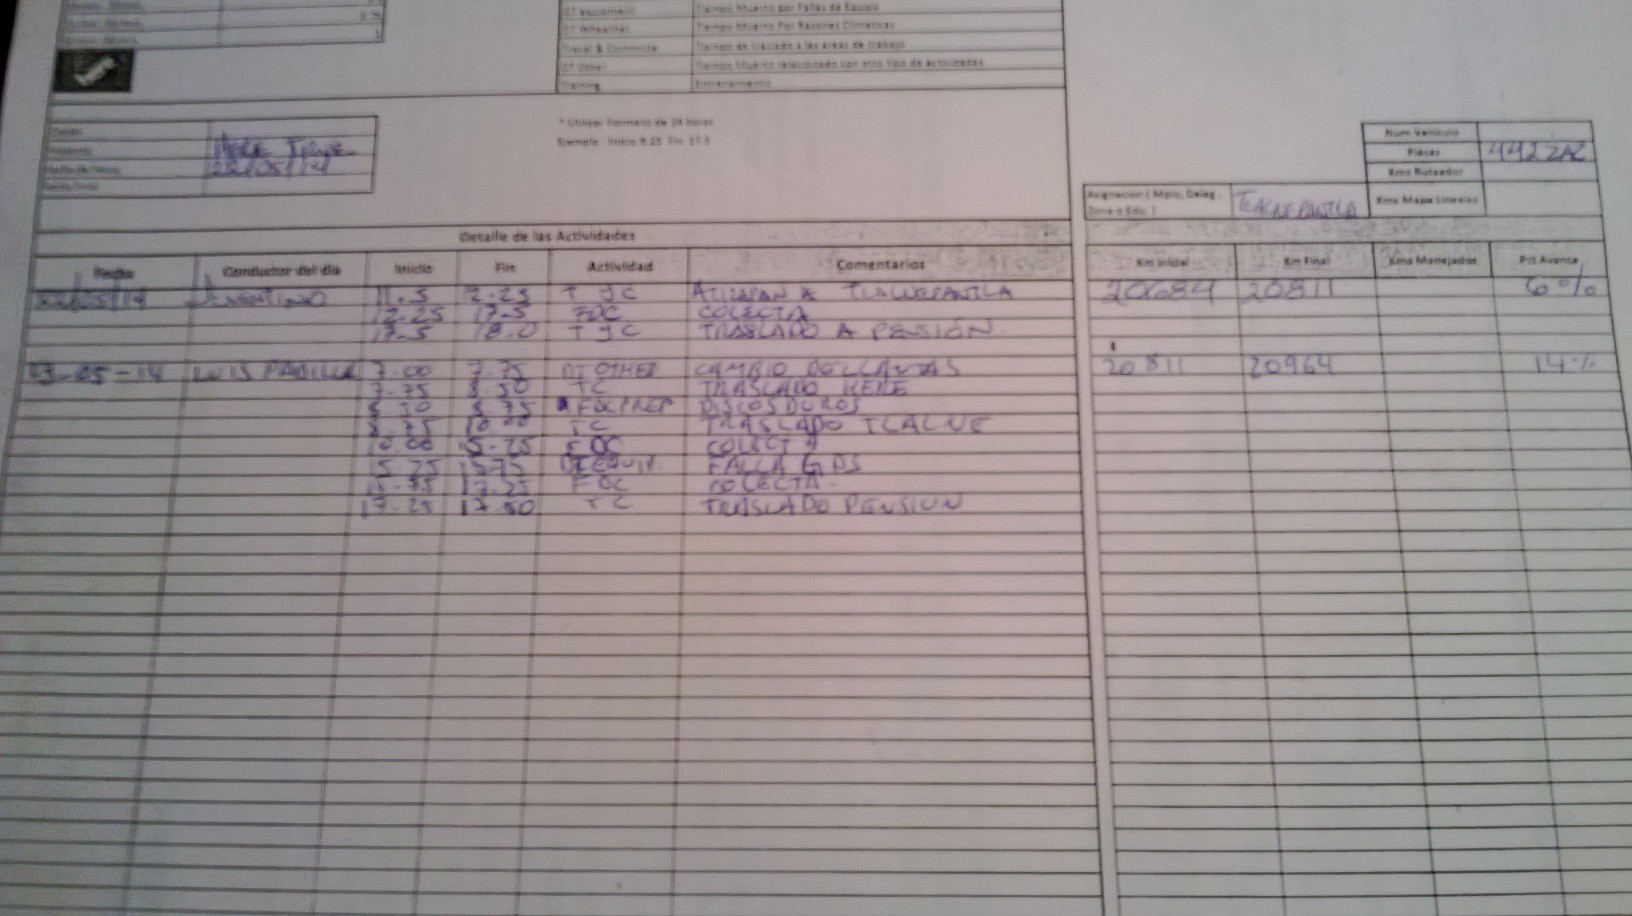 DT Equipment Tiempo Muerto por Fallas de Equipo
DT Weather Tiempo Muerto Por Razones Climaticas
Travel & Commute Tiempo de traslado a las areas de trabajo
DT Other Tiempo Muerto relacionado con otro tipo de actividades
Training Entrenamiento
* Utilizar Formato de 24 horas
Ejemplo: Inicio 9.25 Fin 17.5
Num Vehiculo
Placas 442ZAZ
Kms Ruteador
Kms Mapa Lineales
Asignacion ( Mpio, Deleg,
Zona o Edo. ) TLALNEPANTLA
22/05/14
Detalle de las Actividades
Fecha Conductor del dia Inicio Fin Actividad Comentarios Km Inicial Km Final Kms Manejados Pct Avance
22/05/14 11.5 12.25 T y C ATIZAPAN A TLALNEPANTLA 20684 20811 6%
12.25 17.5 FDC COLECTA
17.5 18.0 T y C TRASLADO A PENSIÓN
23-05-14 LUIS PADILLA 7.00 7.75 DT OTHER CAMBIO DE LLANTAS 20811 20964 14%
7.75 8.50 TC TRASLADO HERE
8.50 8.75 FDC PREP DISCOS DUROS
8.75 10.00 TC TRASLADO TLALNE
10.00 15.25 FDC COLECTA
15.25 15.75 DT EQUIP. FALLA GPS
15.75 17.25 FDC COLECTA
17.25 17.50 TC TRASLADO PENSION